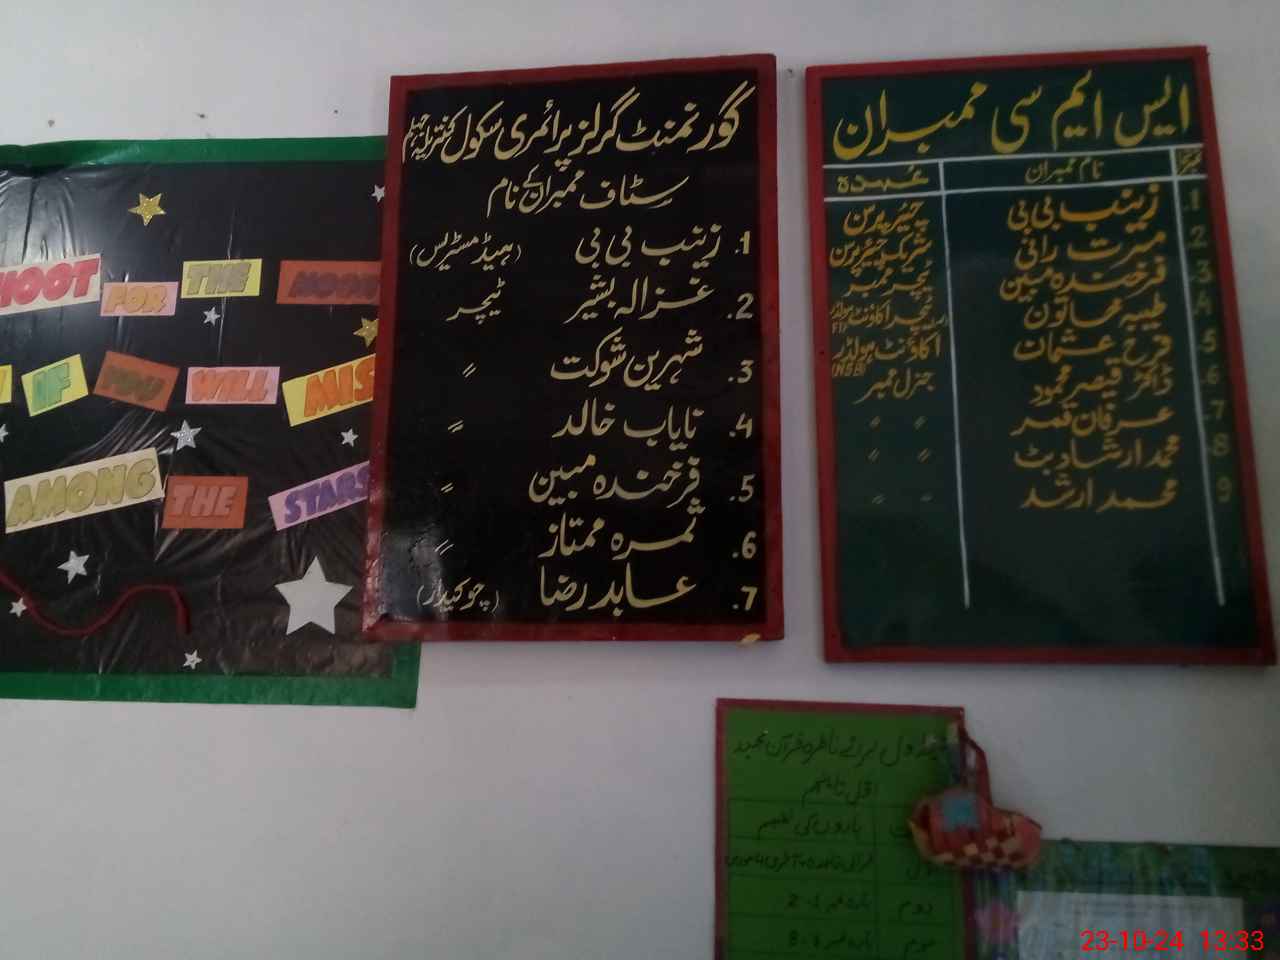 SHOOT FOR THE MOON
IF YOU WILL MISS
AMONG THE STARS
گورنمنٹ گرلز پرائمری سکول کنتریلہ جہلم
سٹاف ممبران کے نام
1. زینب بی بی (ہیڈ مسٹریس)
2. غزالہ بشیر ٹیچر
3. شہرین شوکت 〃
4. نایاب خالد 〃
5. فرخندہ مبین 〃
6. ثمرہ ممتاز 〃
7. عابد رضا (چوکیدار)
ایس ایم سی ممبران
نمبر نام ممبران عہدہ
1. زینب بی بی چیئرپرسن
2. مسرت رانی شریک چیئرپرسن
3. فرخندہ مبین ٹیچر ممبر
4. طیبہ خاتون ٹیچر اکاؤنٹ ہولڈر
5. فرح عثمان اکاؤنٹ ہولڈر (NSB)
6. ڈاکٹر قیصر محمود جنرل ممبر
7. عرفان قمر 〃 〃
8. محمد ارشاد بٹ 〃 〃
9 محمد ارشد 〃 〃
برائے ناظرہ قرآن مجید
پاروں کی تقسیم
دوم پارہ نمبر 1-2
سوم پارہ نمبر 3-8
23-10-24 13:33